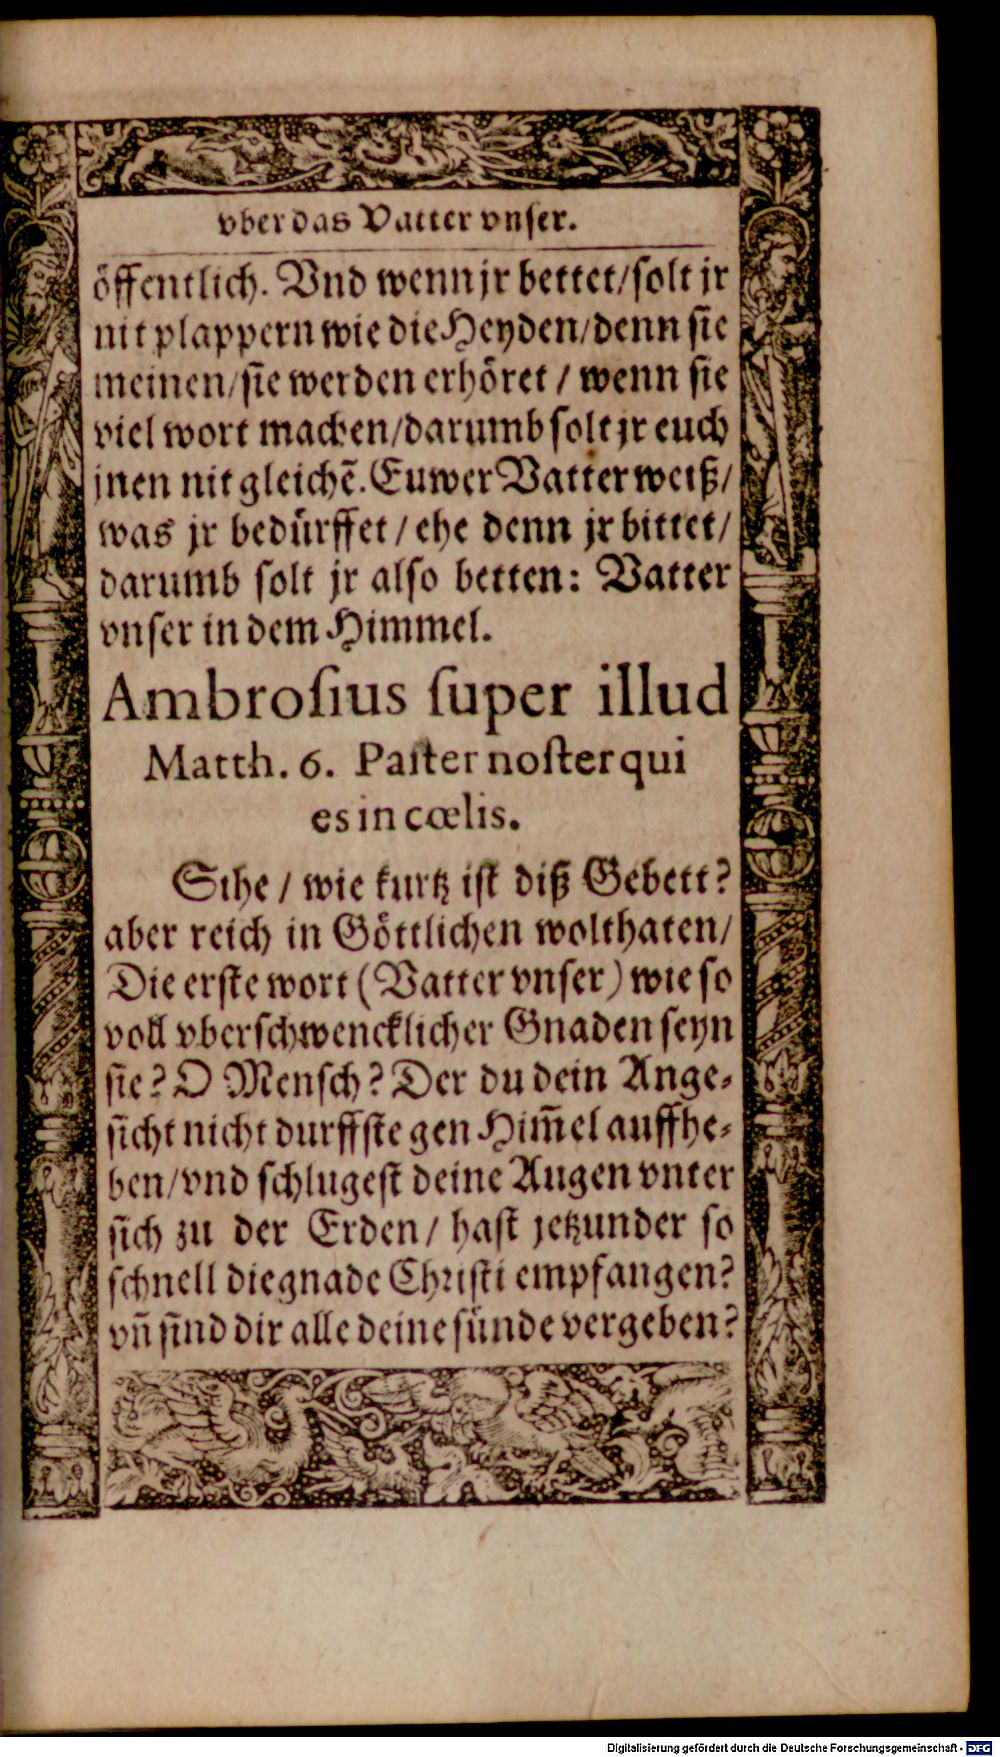 vber das Vatter vnser.
öffentlich. Vnd wenn jr bettet/solt jr
nit plappern wie die Heyden/denn sie
meinen/sie werden erhöret / wenn sie
viel wort machen/darumb solt jr euch
jnen nit gleichē. Euwer Vatter weiß/
was jr bedürffet / ehe denn jr bittet/
darumb solt jr also betten: Vatter
vnser in dem Himmel.
Ambroſius ſuper illud
Matth. 6. Paſter noſter qui
es in cœlis.
Sihe / wie kurtz ist diß Gebett?
aber reich in Göttlichen wolthaten/
Die erste wort (Vatter vnser) wie so
voll vberschwencklicher Gnaden seyn
sie? O Mensch? Der du dein Ange-
sicht nicht durffste gen Him̄el auffhe-
ben/vnd schlugest deine Augen vnter
sich zu der Erden/ hast jetzunder so
schnell die gnade Christi empfangen?
vn̄ sind dir alle deine sünde vergeben?
Digitalisierung gefördert durch die Deutsche Forschungsgemeinschaft - DFG